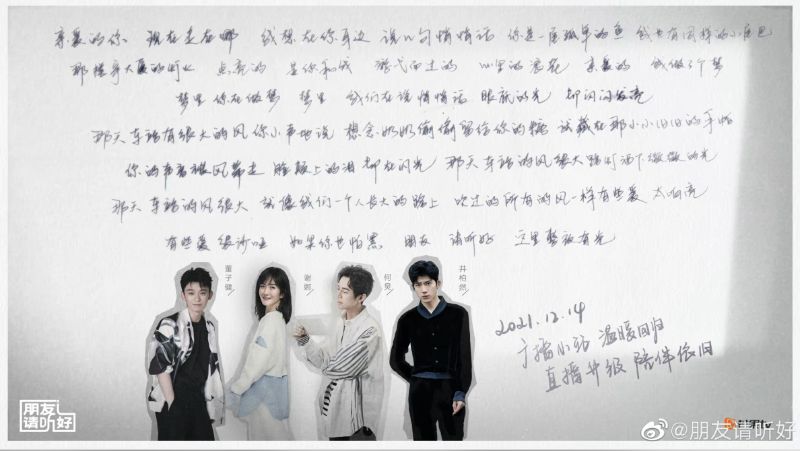 亲爱的你 现在走在哪 我想在你身边 说几句悄悄话 你是一尾孤单的鱼 我也有同样的小尾巴
那摩天大厦的灯火 点亮的 是你和我 擦弋而过的 心里的浪花 亲爱的 我做了个梦
梦里你在做梦 梦里 我们在说悄悄话 眼底的光 却闪闪发亮
那天 车站有很大的风 你小声地说 想念奶奶偷偷留给你的糖 试藏在那小小旧旧的手帕
你的声音被风带走 脸颊上的泪 却在闪光 那天 车站的风很大 路灯洒下微微的光
那天 车站的风很大 就像我们一个人长大的路上 吹过的所有的风一样 有些爱 太响亮
有些爱 很沙哑 如果你也怕黑 朋友 请听好 这里整夜有光
董子健
谢娜
何炅
井柏然
2021.12.14
广播小站 温暖回归
直播升级 陪伴依旧
朋友
请听好
@朋友请听好